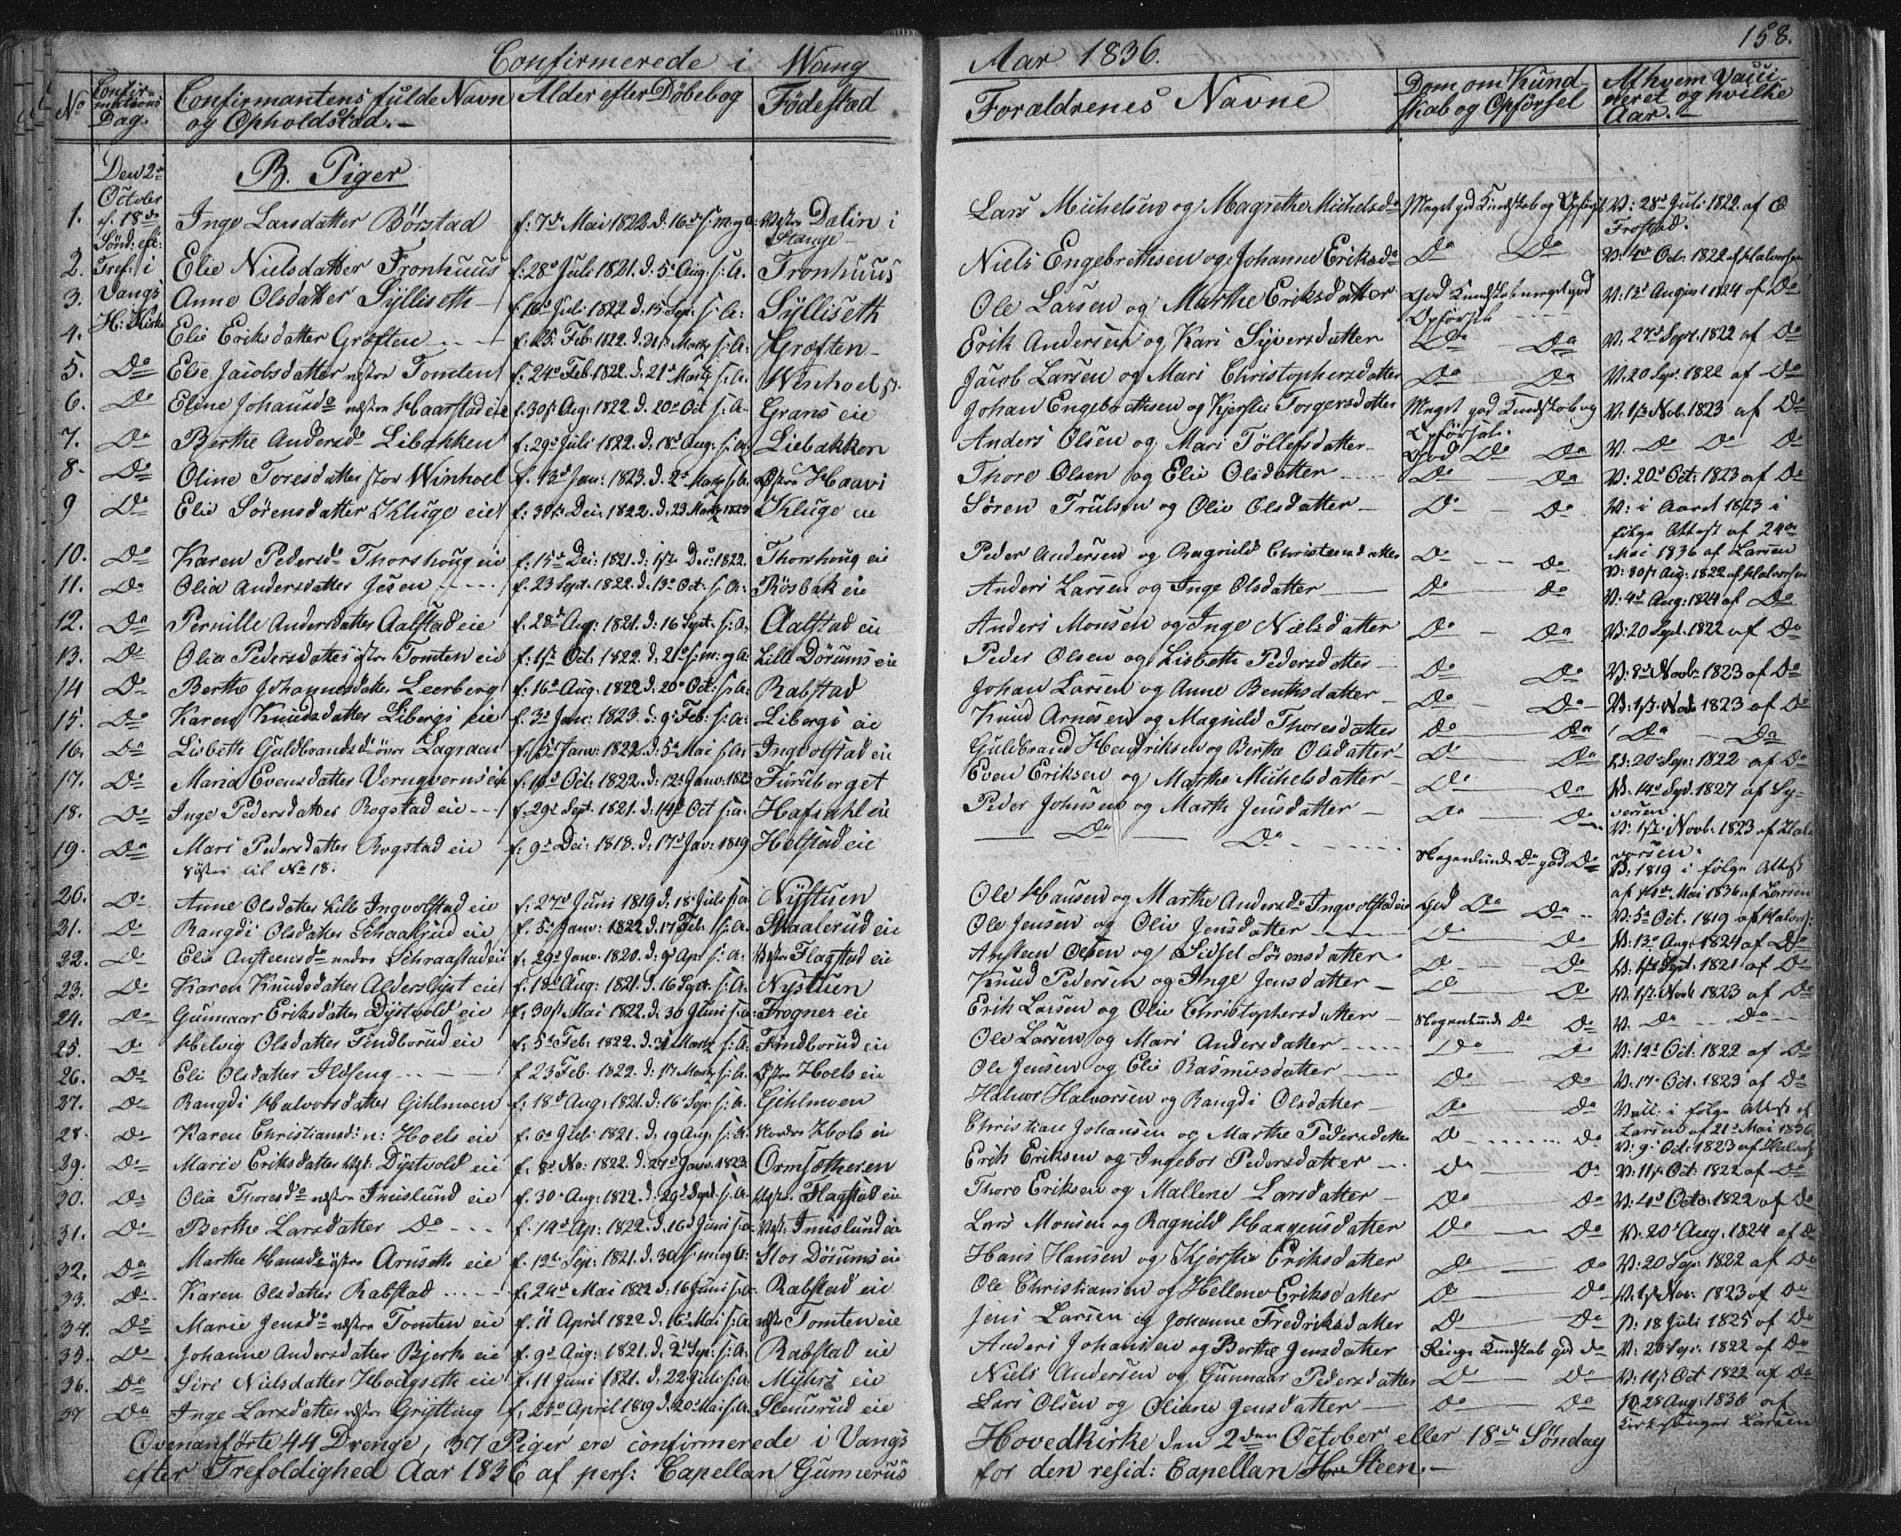 158.
Confirmerede i Wang Aar 1836.
No Confirmations Dag. Confirmantens fulde Navn og Opholdstad.— Alder efter Döbebog Födestad Forældrenes Navne Dom om Kundskab og Opförsel Af hvem Vaccineret og hvilke Aar.—
Den 2den October d. 18de Sönd: eft: Tref: i Vangs H: Kirke
B. Piger
1. Inge Larsdatter Börstad f: 7de Mai 1822 d. 16de s: m: og a: Dalin i Stange Lars Michelsen og Magrethe Michelsda Meget god Kundskab og Opförsel V: 28de Juli 1822 af Frostad.
2. Elie Nielsdatter Fronhuus f: 28de Juli 1821. d: 5te Aug: s: A. Fronhuus Niels Engebrethsen og Johanne Eriksda Do Do V: 4de Oct. 1822 af Halvorsen
3. Anne Olsdatter Sylliseth f: Juli 1822 d. 15 Sep: s: A: Sylliseth Ole Larsen og Marthe Eriksdatter God Kundskab meget god Opförsel V: 12te August 1824 af Do
4. Elie Eriksdatter Græften f: 25 Feb. 1822. d. 31te Martz s: A: Græften Erik Andersen og Kari Syversdatter Do Do V. 27de Sept. 1822 af Do
5. Do Else Jacobsdatter vestre Tomten f: 24de Feb. 1822. d. 21de Martz s: A: Winhoel st. Jacob Larsen og Mari Christophersdatter Do Do V. 20 Sep. 1822 af Do
6. Do Eline Johansda vestre Haarstad eie f: 30te Aug: 1822 d: 20de Oct s: A. Grans eie Johan Engebrethsen og Kjerstie Torgersdatter Meget god Kundskab og Opförsel. V: 1ste Nob. 1823 af Do
7. Do Berthe Andersda Libakken f: 29de Juli 1822. d: 18de Aug: s: A: Liebakken Anders Olsen og Mari Töllefsdatter God Do Do V. Do Do Do
8. Do Oline Toresdatter stor Winhoel f. 13de Jan: 1823. d. 2de Martz s: A. Östre Haavi Thore Olsen og Elie Olsdatter Do Do V: 20de Oct: 1823 af Do
9 Do Elie Sörensdatter Kluge eie f: 30te Dec: 1822. d. 23 Martz 1823 Kluge eie Sören Trulsen og Olie Olsdatter Do Do V: i Aaret 1823 i fölge Attest af 24de Mai 1836 af Larsen
10. Do Karen Pedersda Thorshoug eie f: 15de Dec: 1821. d: 1ste Dec: 1822. Thorshoug eie Peder Andersen og Ragnild Christensdatter Do Do V: 30te Aug: 1822 af Halvorsen
11. Do Olia Andersdatter Jesen f. 23 Sept. 1822. d. 13de Oct. s: A: Rösbak eie Anders Larsen og Inge Olsdatter Do Do V. 4de Aug: 1824 af Do
12. Do Pernille Andersdatter Aalstad eie f. 28de Aug: 1821. d: 16 Sept. s: A. Aalstad eie Anders Monsen og Inge Nielsdatter Do Do V: 20 Sept. 1822 af Do
13. Do Olia Pedersdatter östre Tomten eie f: 1ste Oct. 1822. d. 21de s: m: og A: Lille Dörums eie Peder Olsen og Lisbeth Pedersdatter Do Do V: 8de Novb: 1823 af Do
14 Do Berthe Johannesdatter Leerberg f: 16de Aug: 1822 d: 20de Oct: s: A: Rabstad Johan Larsen og Anne Benthsdatter Do Do V: 1ste Nob: 1823 af Do
15. Do Karen Knudsdatter Libergs eie f: 3de Jan: 1823. d: 9de Feb: s: A: Libergs eie Knud Arnesen og Magnild Thoresdatter Do Do Do Do
16. Do Lisbeth Guldbrandsda övre Lagraen f: 5te Janv: 1822 d: 5te Mai s: A: Ingvolstad eie Guldbrand Hendriksen og Berthe Olsdatter Do Do V: 20de Sep: 1822 af Do
17. Do Maria Evensdatter Vernqverns eie f: Oct. 1822. d: 12te Janv: 1823 Furuberget Even Eriksen og Marthe Michelsdatter Do Do V. 14de Sept. 1827 af Syversen
18. Do Inge Pedersdatter Rogstad eie f: 29de Sept. 1821. d: 14de Oct s: a: Hafsahl eie Peder Johnsen og Marth Jensdatter Do Do V: 1ste Novb: 1823 af Halvorsen.
19. Do Mari Pedersdatter Rogstad eie söster til No 18. f: 9de Dec: 1818. d. 17de Jan: 1819 Helstad eie Do Do Nogenlunde Do god Do V. 1819 i fölge Attest af Mai 1836 af Larsen
20. Do Anne Olsdatter Lille Ingvolstad eie f: 27de Juni 1819 d. 18de Juli s: a: Nystuen Ole Hansen og Marthe Andersda Ingvolstad eie God Do Do V: 5te Oct. 1819 af Halvors:
21. Do Rangdi Olsdatter Schaalerud eie f: 5te Janv: 1822 d. 17de Feb: s: A. Skaalerud eie Ole Jensen og Olie Jensdatter Do Do V: 13de Aug: 1824 af Do
22. Do Elie Austensda nedre Schraastad eie f. 29de Janv. 1820. d: 9de Apr s: a: Vestre Flagstad eie Austen Olsen og Sidsel Sörensdatter Do Do V: 1ste Sept: 1821 af Do
23. Do Karen Knudsdatter Alderslyst eie f. 12te Aug: 1821. d. 16 Sept. s: A. Nystuen Knud Pedersen og Inge Jensdatter Do Do V: 1ste Novb 1823 af Do
24. Do Gunnaar Eriksdatter Dystvold eie f: 30te Mai 1822. d. 30 Juni s: a: Frogner eie Erik Larsen og Olie Christophersdatter Nogenlunde Do Do V. Do Do
25. Do Helvig Olsdatter Findborud eie f: 5te Feb: 1822. d. 31 Martz s: A: Findborud eie Ole Larsen og Mari Andersdatter Do Do V: 12te Oct. 1822 af Do
26. Do Eli Olsdatter Ildseng f. 23 Feb. 1822. d: 17 Martz s: A: Östre Hoels eie Ole Jensen og Elie Rasmusdatter Do Do V. 17de Oct. 1823 af Do
27. Do Rangdi Halvorsdatter Gihlmoen f: 18de Aug: 1821. d: 16 Sep: s: A. Gihlmoen Halvor Halvorsen og Rangdi Olsdatter Do Do Vacc: i fölge Attest af Larsen af 21de Mai 1836
28. Do Karen Christiansd: n: Hoels eie f: 6te Juli 1821. d. 19 Aug. s: A: Nordre Hols eie Christian Johansen og Marthe Pedersdatter Do Do V: 9de Oct: 1823 af Halvors:
29. Do Marie Eriksdatter Dystvold eie f: 8de No: 1822. d. 27de Janv: 1823. Ormsætheren Erik Eriksen og Ingebor Pedersdatter Do Do V: 11te Oct: 1822 af Do
30. Do Olia Thoresda vestre Imislund eie f. 30te Aug: 1822. d: 29de Sept. s: A. vest: Flagstad eie Thore Eriksen og Mallene Larsdatter Do Do V. 4de Octo: 1822 af Do
31. Do Berthe Larsdatter Do f. 14de Ap: 1822. d. 16de Juni s: a: Vest: Imislund eie Lars Monsen og Ragnild Haagensdatter Do Do V. 20de Aug. 1824 af Do
32. Do Marthe Hansda östre Arneseth eie f. 12te Sep: 1821. d. 30te s: m: og A: Stor Dörums eie Hans Hansen og Kjersti Eriksdatter Do Do V: 20 Sep: 1822 af Do
33. Do Karen Olsdatter Rabstad f. 24de Mai 1822 d. 16 Juni s: a: Rabstad eie Ole Christiansen og Hellene Eriksdatter Do Do V. 1ste Nov: 1823 af Do
34. Do Marie Jensda vestre Tomten eie f. 11 April 1822 d. 16 Mai s: A: vestre Tomten eie Jens Larsen og Johanne Fredriksdatter Do Do V: 18 Juli 1825 af Do
35. Do Johanne Andersdatter Bjerke eie f. 9de Aug: 1821. d. 2de Sep: s: A: Rabstad eie Anders Johansen og Berthe Jensdatter Ringe Kundskab god Do V: 20 Sep: 1822 af Do
36. Do Siri Nielsdatter Hodgseth eie f. 11 Juni 1821. d. 22 Juli s: A. Myhrs eie Niels Andersen og Gunnaar Pedersdatter Do Do V: 11te Oct 1822 af Do
37 Do Inge Larsdatter vestre Grytting f. 21de April 1819 d. 20de Mai s: A. Slemsrud eie Lars Olsen og Oliane Jensdatter Do Do V. 28 Aug: 1836 af Kirkesanger Larsen
Ovenanförte 44 Drenge, 37 Piger ere confirmerede i Vangs Hovedkirke den 2den October eller 18de Söndag
efter Trefoldighed Aar 1836 af pers: Capellan Gunnerus for den resid: Capellan Hr. Steen.—